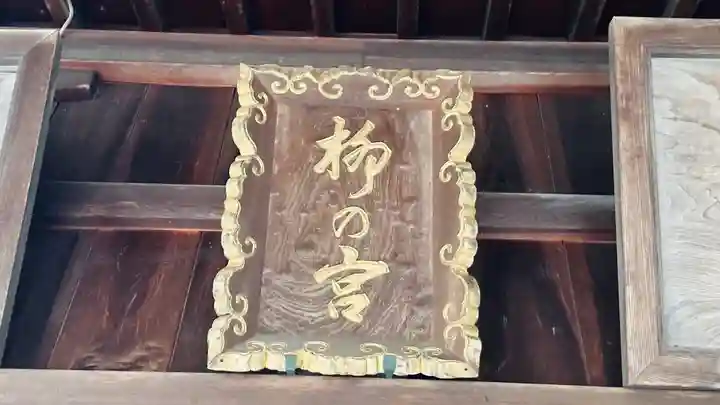 柳の宮